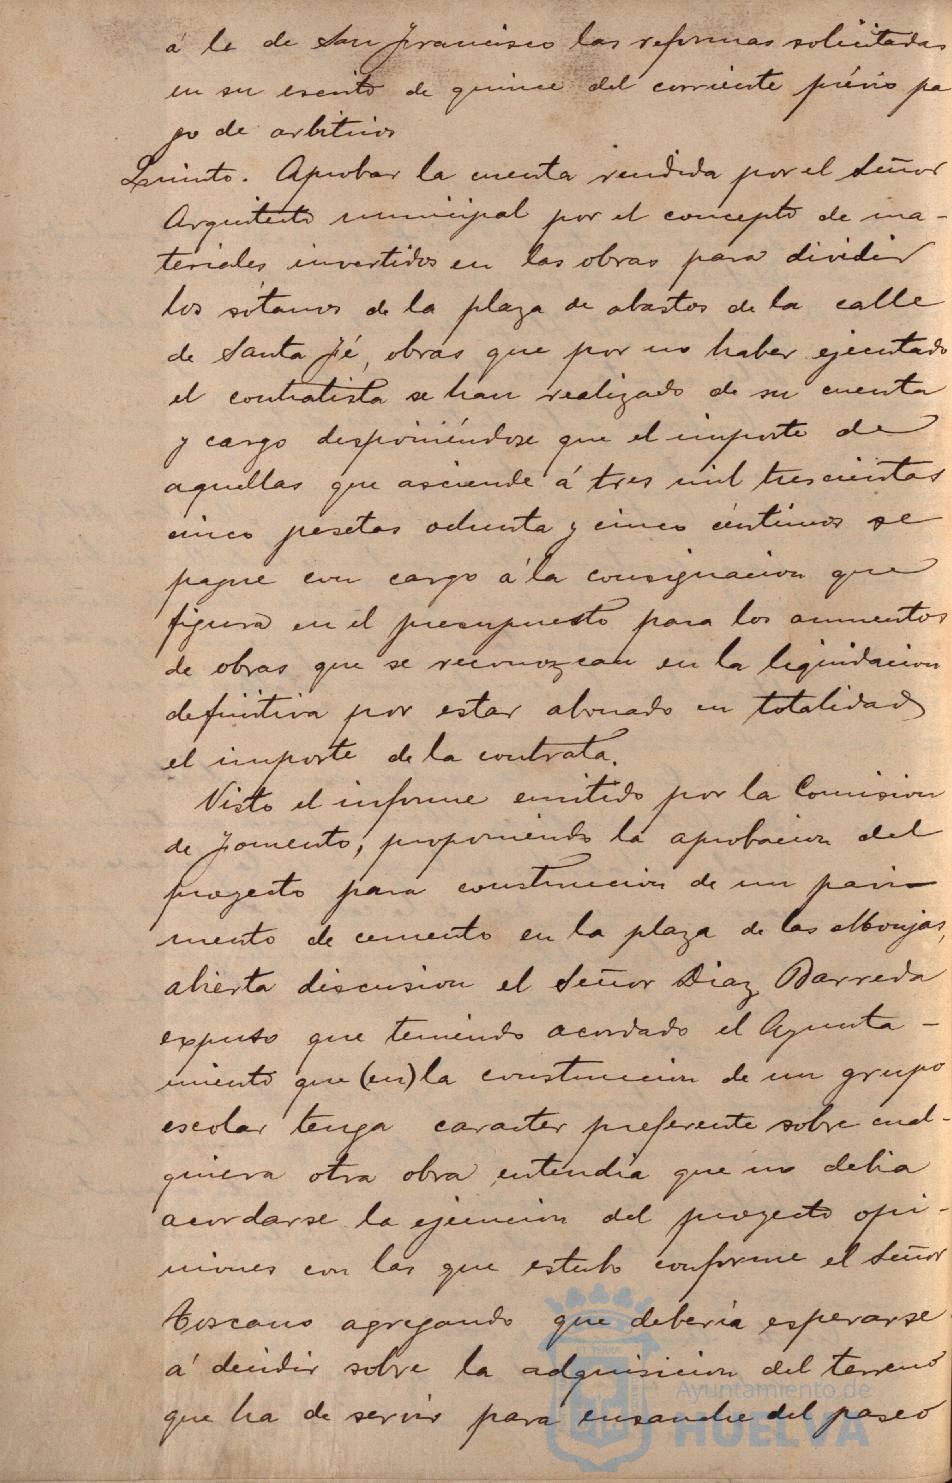 á la de San Francisco las reformas solicitadas
en su escrito de quince del corriente prévio pa
go de arbitrios
Quinto. Aprobar la cuenta rendida por el Señor
Arquitecto municipal por el concepto de ma-
teriales invertidos en las obras para dividir
los sótanos de la plaza de abastos de la calle
de Santa Fé, obras que por no haber ejecutado
el contratista se han realizado de su cuenta
y cargo disponiéndose que el importe de
aquellas que asciende á tres mil trescientas
cinco pesetas ochenta y cinco céntimos se
pague con cargo á la consignacion que
figura en el presupuesto para los aumentos
de obras que se reconozcan en la liquidacion
definitiva por estar abonado en totalidad
el importe de la contrata.
Visto el informe emitido por la Comision
de Fomento, proponiendo la aprobacion del
proyecto para construccion de un pavi-
mento de cemento en la plaza de las Monjas,
abierta discusion el Señor Diaz Barreda
expuso que teniendo acordado el Ayunta-
miento que (en) la construccion de un grupo
escolar tenga caracter preferente sobre cual-
quiera otra obra, entendia que no debia
acordarse la ejecucion del proyecto opi-
niones con las que estubo conforme el Señor
Toscano agregando que debería esperarse
á decidir sobre la adquisicion del terreno
que ha de servir para ensanche del paseo
Ayuntamiento de
HUELVA